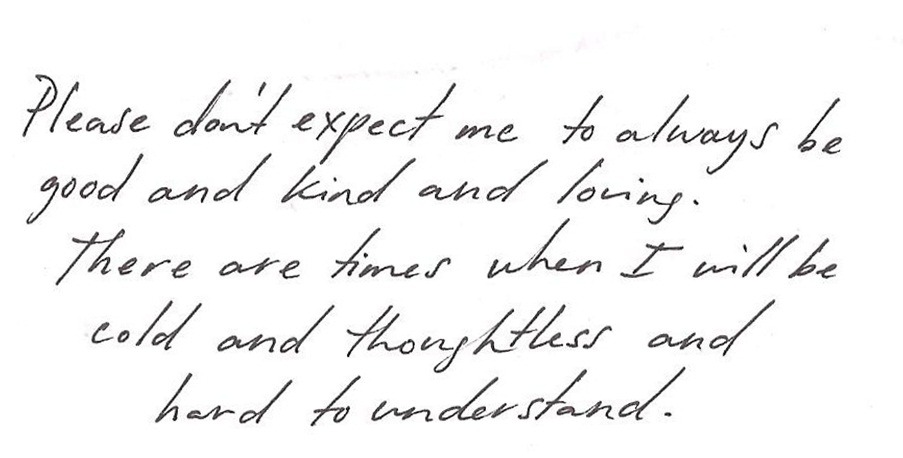 Please don't expect me to always be
good and kind and loving.
There are times when I will be
cold and thoughtless and
hard to understand.